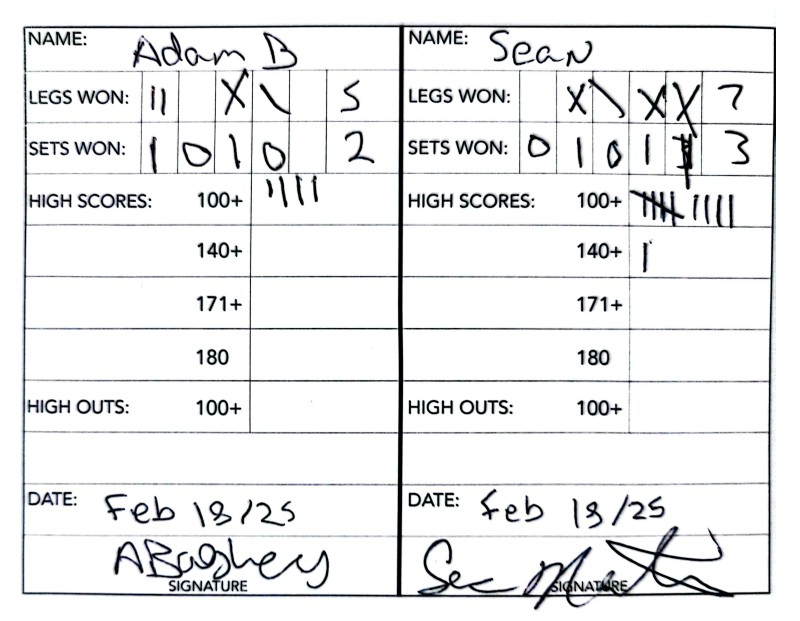 NAME: Adam B
LEGS WON: II X \ 5
SETS WON: 1 0 1 0 2
HIGH SCORES: 100+ IIII
140+
171+
180
HIGH OUTS: 100+
DATE: Feb 18/25
ABaghery
SIGNATURE
NAME: Sean
LEGS WON: X \ X X 7
SETS WON: 0 1 0 1 1 3
HIGH SCORES: 100+ IIII IIII
140+ I
171+
180
HIGH OUTS: 100+
DATE: Feb 18/25
SIGNATURE